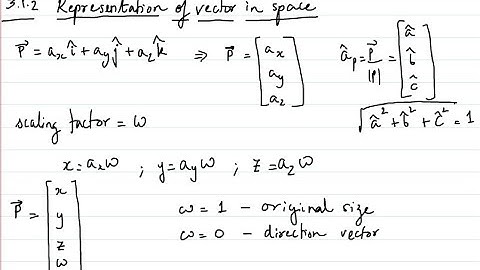 3.1.2 Representation of vector in space
P⃗ = aₓ î + a_y ĵ + a_z k̂ ⇒ P⃗ = [aₓ a_y a_z] â_p = P⃗/|P| = [â b̂ ĉ]
√(â² + b̂² + ĉ²) = 1
scaling factor = ω
x = aₓω ; y = a_yω ; z = a_zω
P⃗ = [x y z ω]
ω = 1 – original size
ω = 0 – direction vector